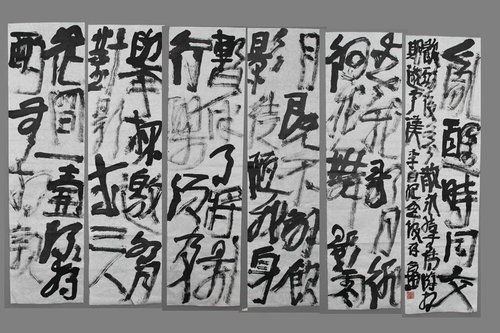 花間一壺酒獨
酌無相親
舉杯邀明月
對影成三人
暫伴月將影
行樂須及春
月既不解飲
影徒隨我身
我歌月徘
徊我舞影零
亂醒時同交
歡醉後各分散永結無情遊相
期邈雲漢李白